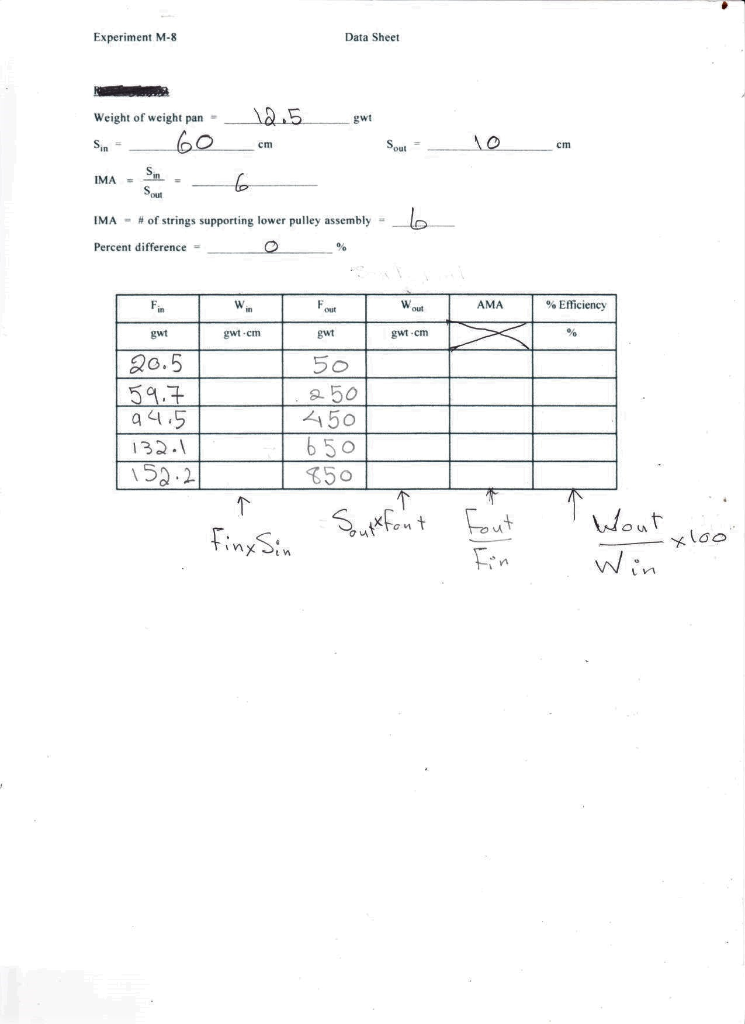 Experiment M-8 Data Sheet
Weight of weight pan = 12.5 gwt
Sin = 60 cm Sout = 10 cm
IMA = Sin / Sout = 6
IMA = # of strings supporting lower pulley assembly = 6
Percent difference = 0 %
Fin Win Fout Wout AMA % Efficiency
gwt gwt-cm gwt gwt-cm %
20.5 50
59.7 250
94.5 450
132.1 650
152.2 850
Fin x Sin Sout x Fout Fout / Fin Wout / Win x 100